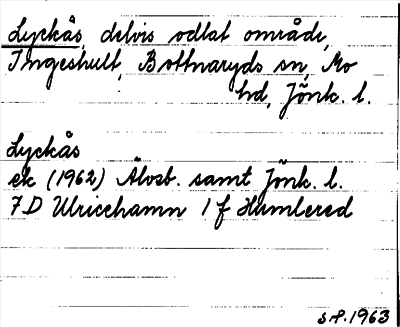 Lyckås, delvis odlat område,
Ingeshult, Bottnaryds sn, Mo
hd, Jönk. l.
Lyckås
ek (1962) Älvsb. samt Jönk. l.
7D Ulricehamn 1 f Humlered
S.P. 1963